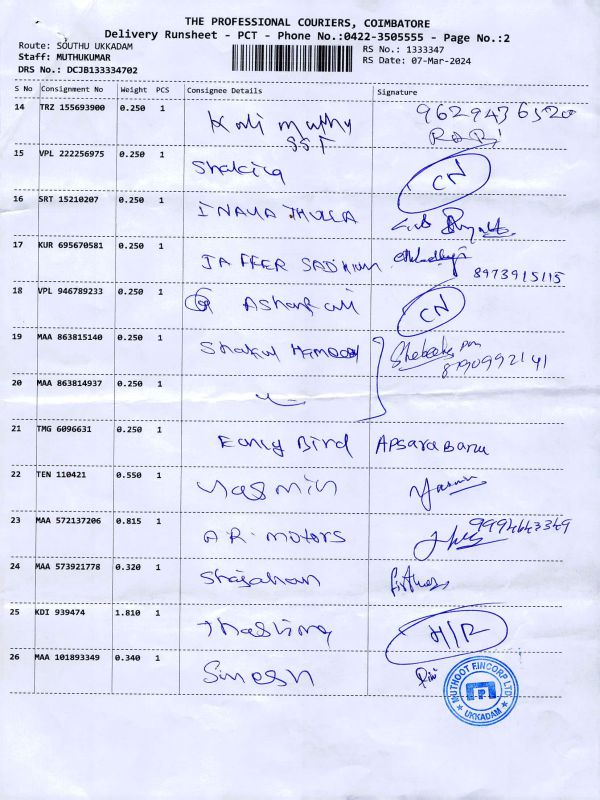 THE PROFESSIONAL COURIERS, COIMBATORE
Delivery Runsheet - PCT - Phone No.:0422-3505555 - Page No.:2
Route: SOUTHU UKKADAM
Staff: MUTHUKUMAR
DRS No.: DCJB133334702
RS No.: 1333347
RS Date: 07-Mar-2024
S No Consignment No Weight PCS Consignee Details Signature
14 TRZ 155693900 0.250 1 Kali muthu
SSF
15 VPL 222256975 0.250 1 Shakira CN
16 SRT 15210207 0.250 1 INAYA THULLA
17 KUR 695670581 0.250 1 JAFFER SADHIUM 8973915115
18 VPL 946789233 0.250 1 Asharf ali CN
19 MAA 863815140 0.250 1 Shakul Hameed
8790992141
20 MAA 863814937 0.250 1
21 TMG 6096631 0.250 1 Early Bird APsara Banu
22 TEN 110421 0.550 1 Yasmin
23 MAA 572137206 0.815 1 A.R. motors
24 MAA 573921778 0.320 1 Shajahan
25 KDI 939474 1.810 1 H/R
26 MAA 101893349 0.340 1 Sinesh
MUTHOOT FINCORP LTD.
UKKADAM